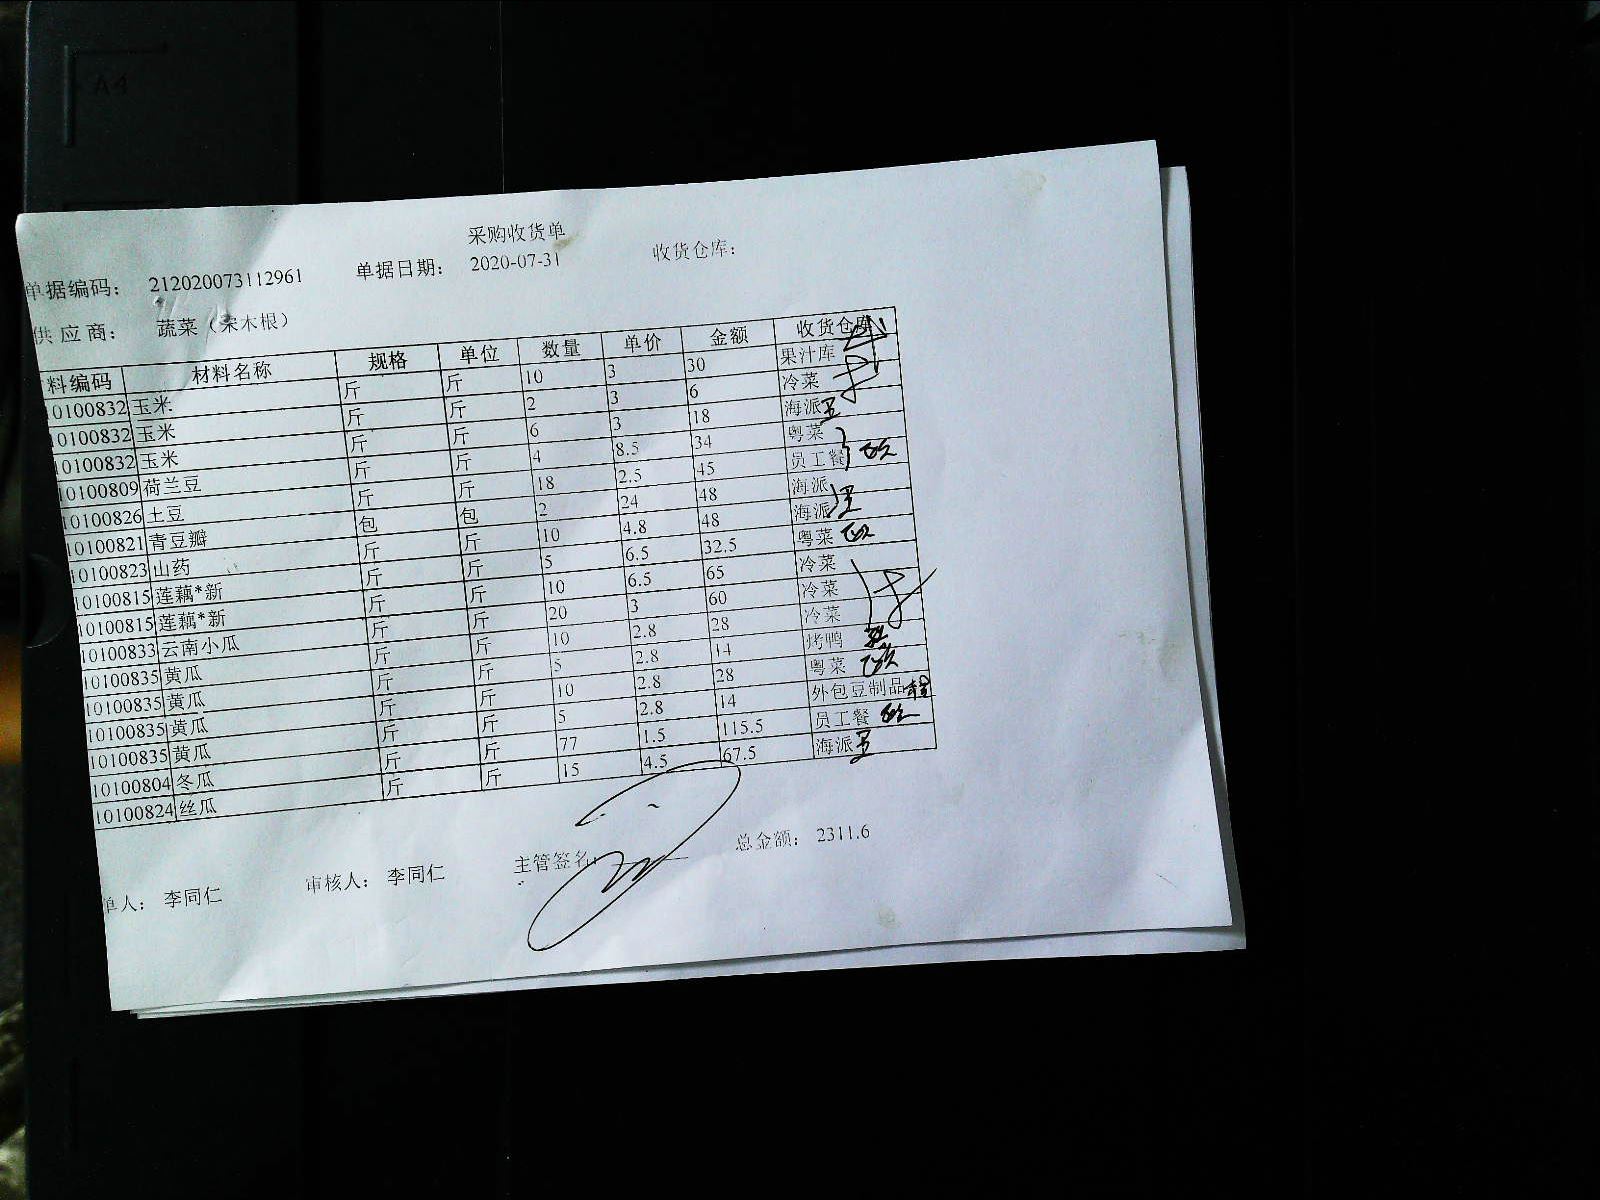 采购收货单
单据编码： 212020073112961 单据日期： 2020-07-31 收货仓库：
供应商： 蔬菜（宋木根）
料编码 材料名称 规格 单位 数量 单价 金额 收货仓库
10100832 玉米 斤 斤 10 3 30 果汁库
10100832 玉米 斤 斤 2 3 6 冷菜
10100832 玉米 斤 斤 6 3 18 海派
10100809 荷兰豆 斤 斤 4 8.5 34 粤菜
10100826 土豆 斤 斤 18 2.5 45 员工餐
10100821 青豆瓣 包 包 2 24 48 海派
10100823 山药 斤 斤 10 4.8 48 海派
10100815 莲藕*新 斤 斤 5 6.5 32.5 粤菜
10100815 莲藕*新 斤 斤 10 6.5 65 冷菜
10100833 云南小瓜 斤 斤 20 3 60 冷菜
10100835 黄瓜 斤 斤 10 2.8 28 冷菜
10100835 黄瓜 斤 斤 5 2.8 14 烤鸭
10100835 黄瓜 斤 斤 10 2.8 28 粤菜
10100835 黄瓜 斤 斤 5 2.8 14 外包豆制品
10100804 冬瓜 斤 斤 77 1.5 115.5 员工餐
10100824 丝瓜 斤 斤 15 4.5 67.5 海派
单人： 李同仁 审核人： 李同仁 主管签名: 总金额： 2311.6